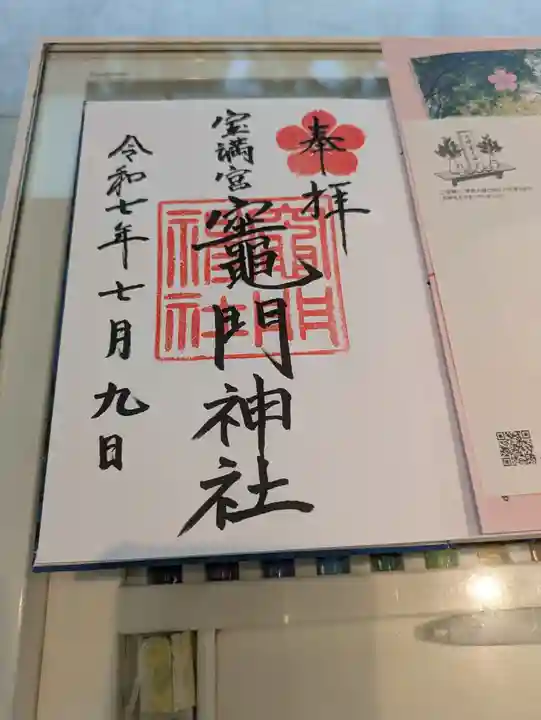 奉拝
宝満宮
竈門神社
令和七年七月九日
竈門
神社